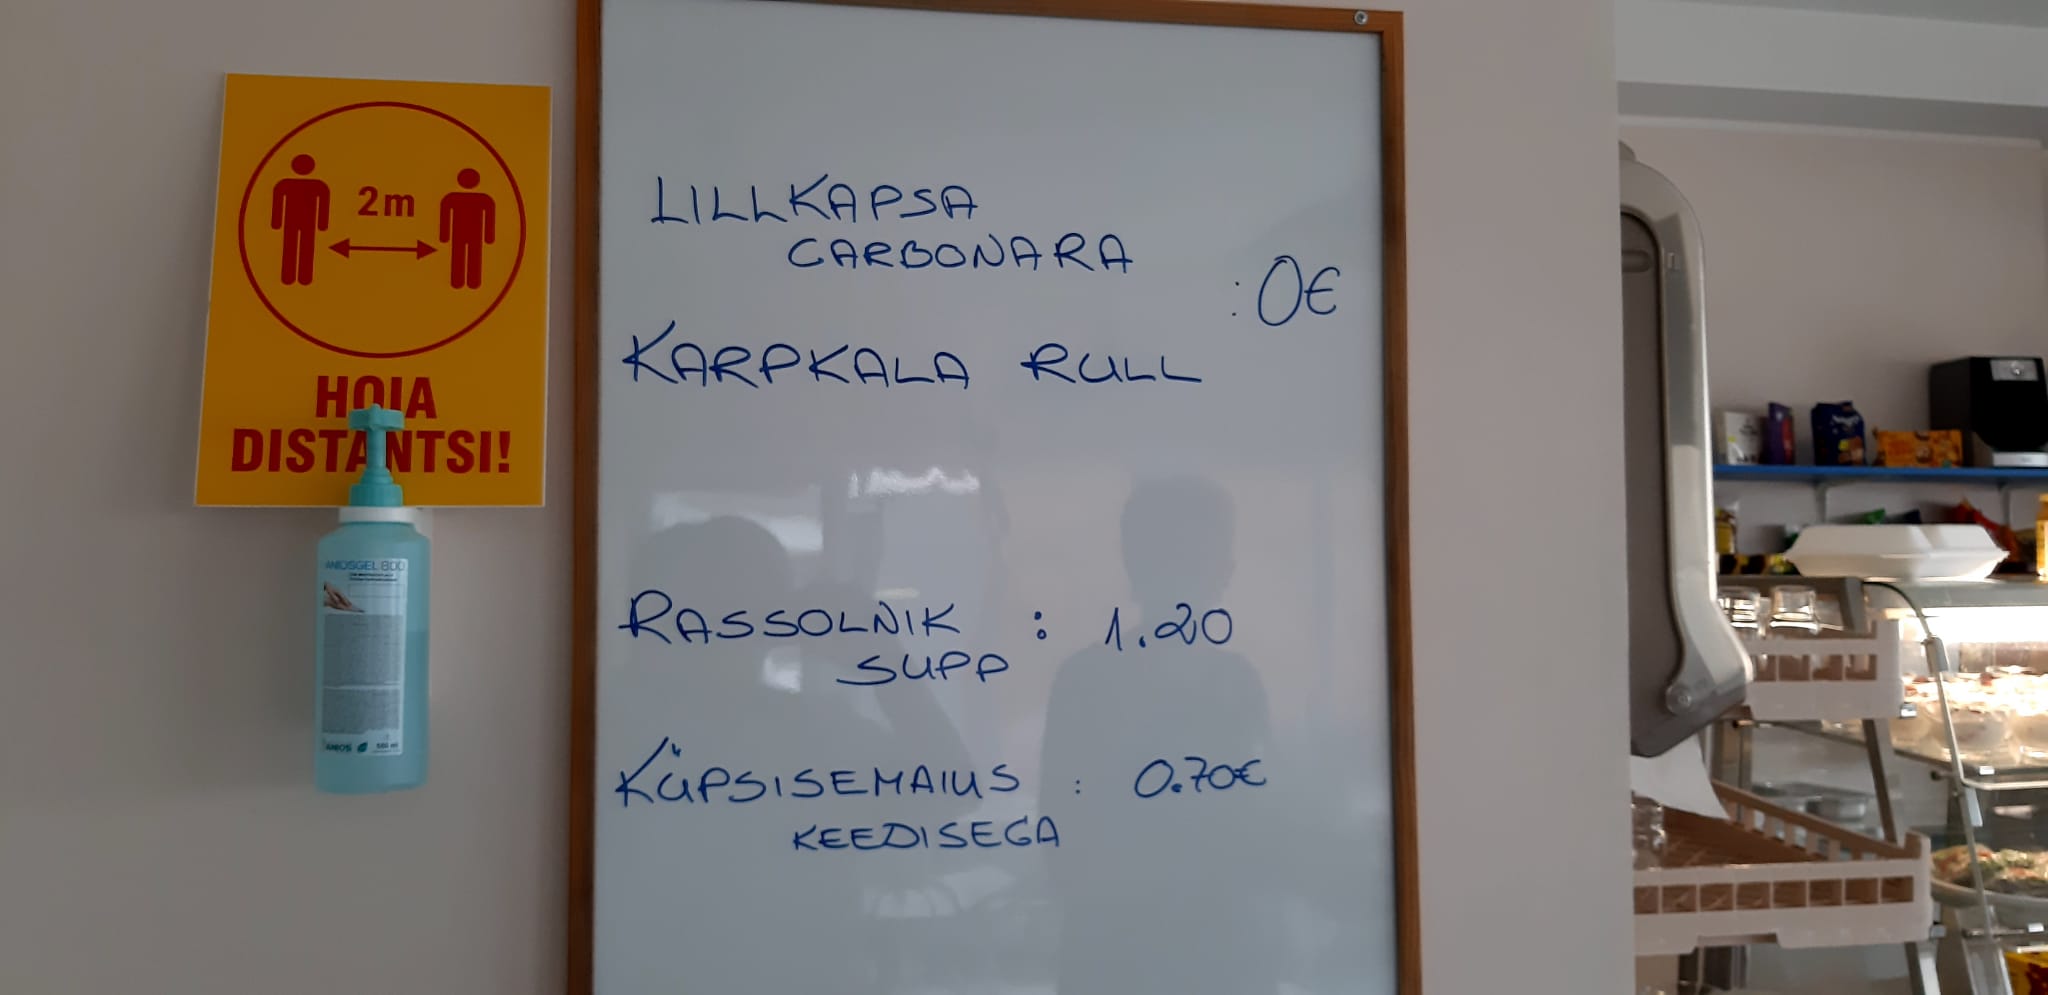 2m
HOIA
DISTANTSI!
ANIOSGEL 800
ANIOS
500 ml
LILLKAPSA
CARBONARA
: 0€
KARPKALA RULL
RASSOLNIK : 1.20
SUPP
KÜPSISEMAIUS : 0.70€
KEEDISEGA